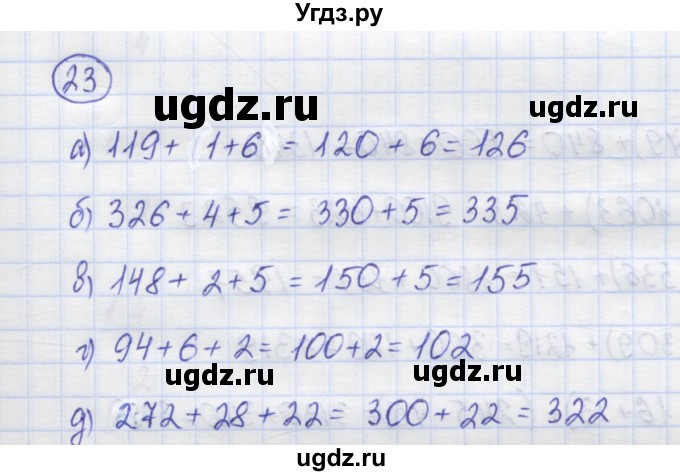 Угдз.ру
23
ugdz.ru
а) 119 + (1+6) = 120 + 6 = 126
б) 326 + 4 + 5 = 330 + 5 = 335
в) 148 + 2 + 5 = 150 + 5 = 155
г) 94 + 6 + 2 = 100 + 2 = 102
ugdz.ru ugdz.ru
д) 272 + 28 + 22 = 300 + 22 = 322
ugdz.ru